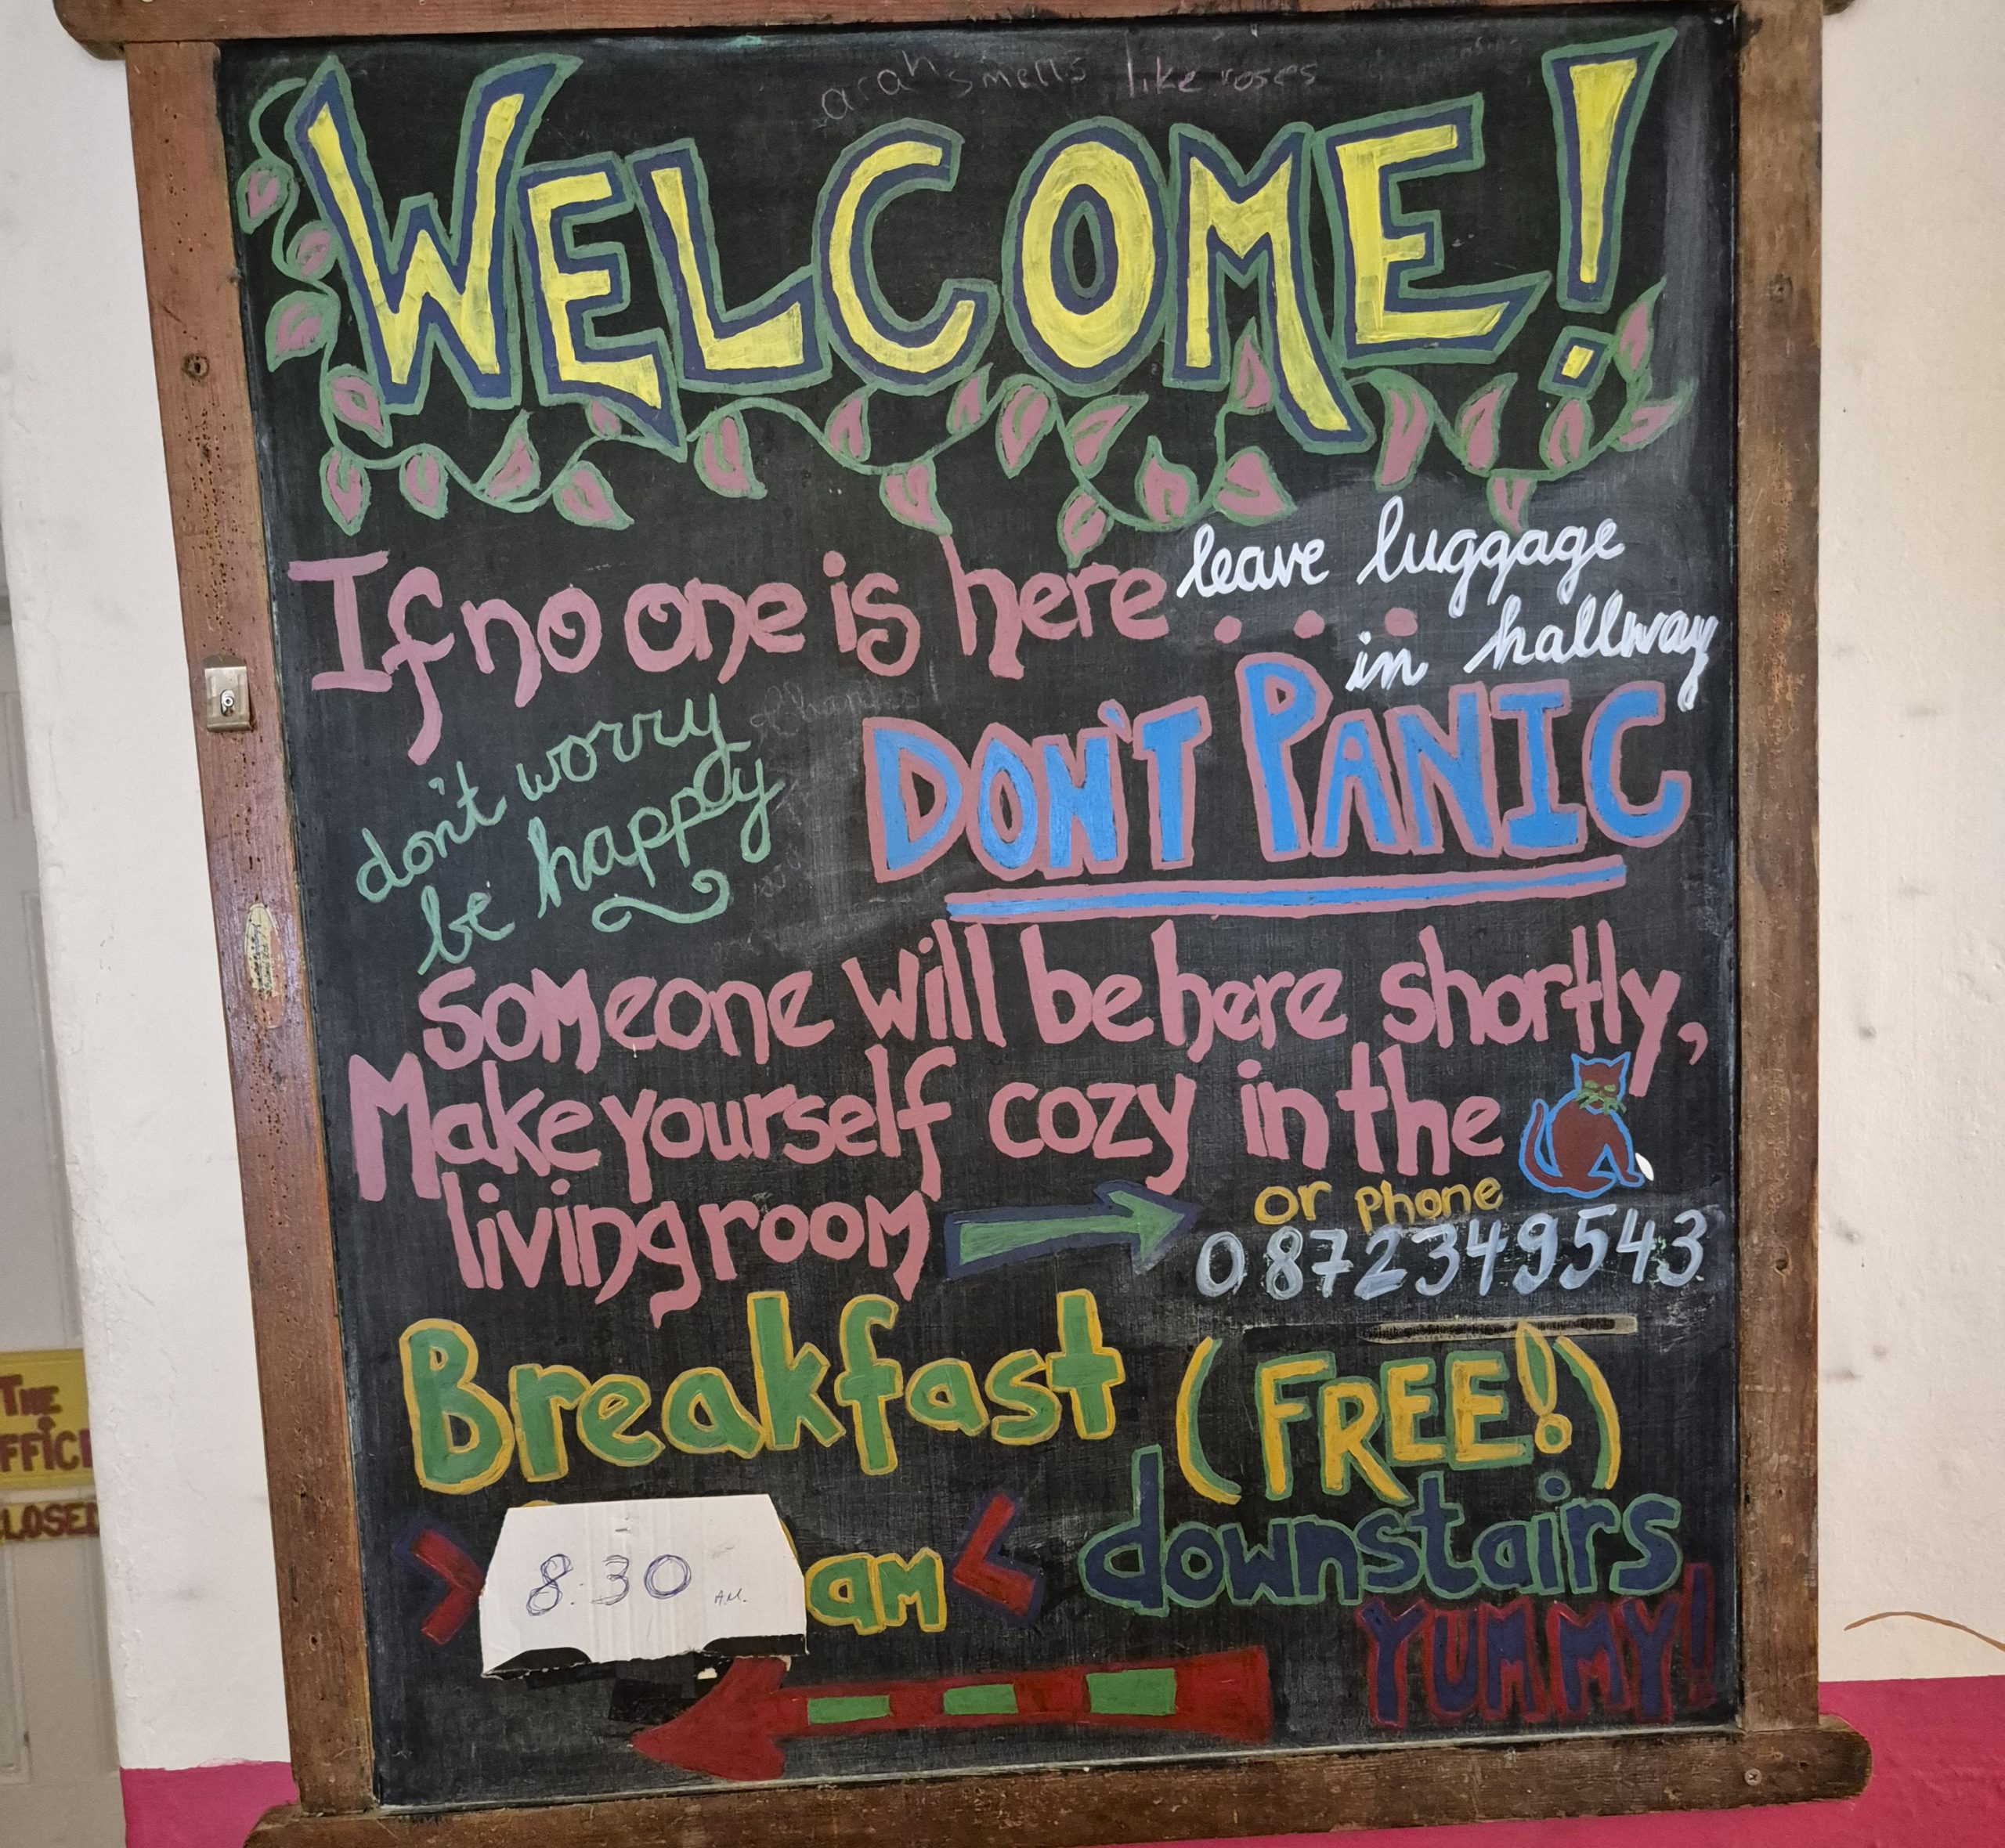 arah smells like roses
WELCOME!
If no one is here...
leave luggage
in hallway
don't worry
be happy
DON'T PANIC
someone will be here shortly,
Make yourself cozy in the
living room
or phone
0872349543
Breakfast (FREE!)
8:30 A.M.
am
downstairs
YUMMY!
THE
FFICE
LOSED